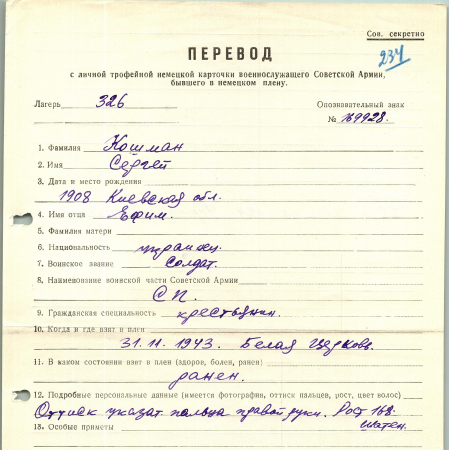 Сов. секретно
234
ПЕРЕВОД
с личной трофейной немецкой карточки военнослужащего Советской Армии,
бывшего в немецком плену.
Лагерь 326 Опознавательный знак
№ 169928.
1. Фамилия Кошман
2. Имя Сергей
3. Дата и место рождения
1908 Киевская обл.
4. Имя отца Ефим.
5. Фамилия матери
6. Национальность украинец
7. Воинское звание Солдат.
8. Наименование воинской части Советской Армии
СП.
9. Гражданская специальность крестьянин.
10. Когда и где взят в плен
31.11.1943. Белая Церковь.
11. В каком состоянии взят в плен (здоров, болен, ранен)
ранен.
12. Подробные персональные данные (имеется фотография, оттиск пальцев, рост, цвет волос)
Оттиск указат. пальца правой руки. Рост 168.
13. Особые приметы шатен.